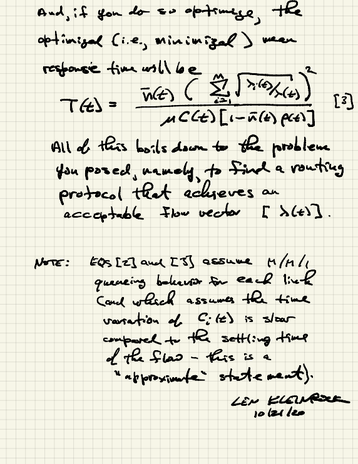 And, if you do so optimize, the
optimized (i.e., minimized) mean
response time will be
T(t) = n̄(t) ( Σ_{i=1}^{M} √(λᵢ(t)/λ(t)) )² / μC(t)[1 - n̄(t) ρ(t)] [3]
All of this boils down to the problem
you posed, namely, to find a routing
protocol that achieves an
acceptable flow vector [λ(t)].
NOTE: EQS [2] and [3] assume M/M/1
queueing behavior for each link
(and which assumes the time
variation of Cᵢ(t) is slow
compared to the settling time
of the flow - this is a
"approximate" statement).
LEN KLEINROCK
10/21/20